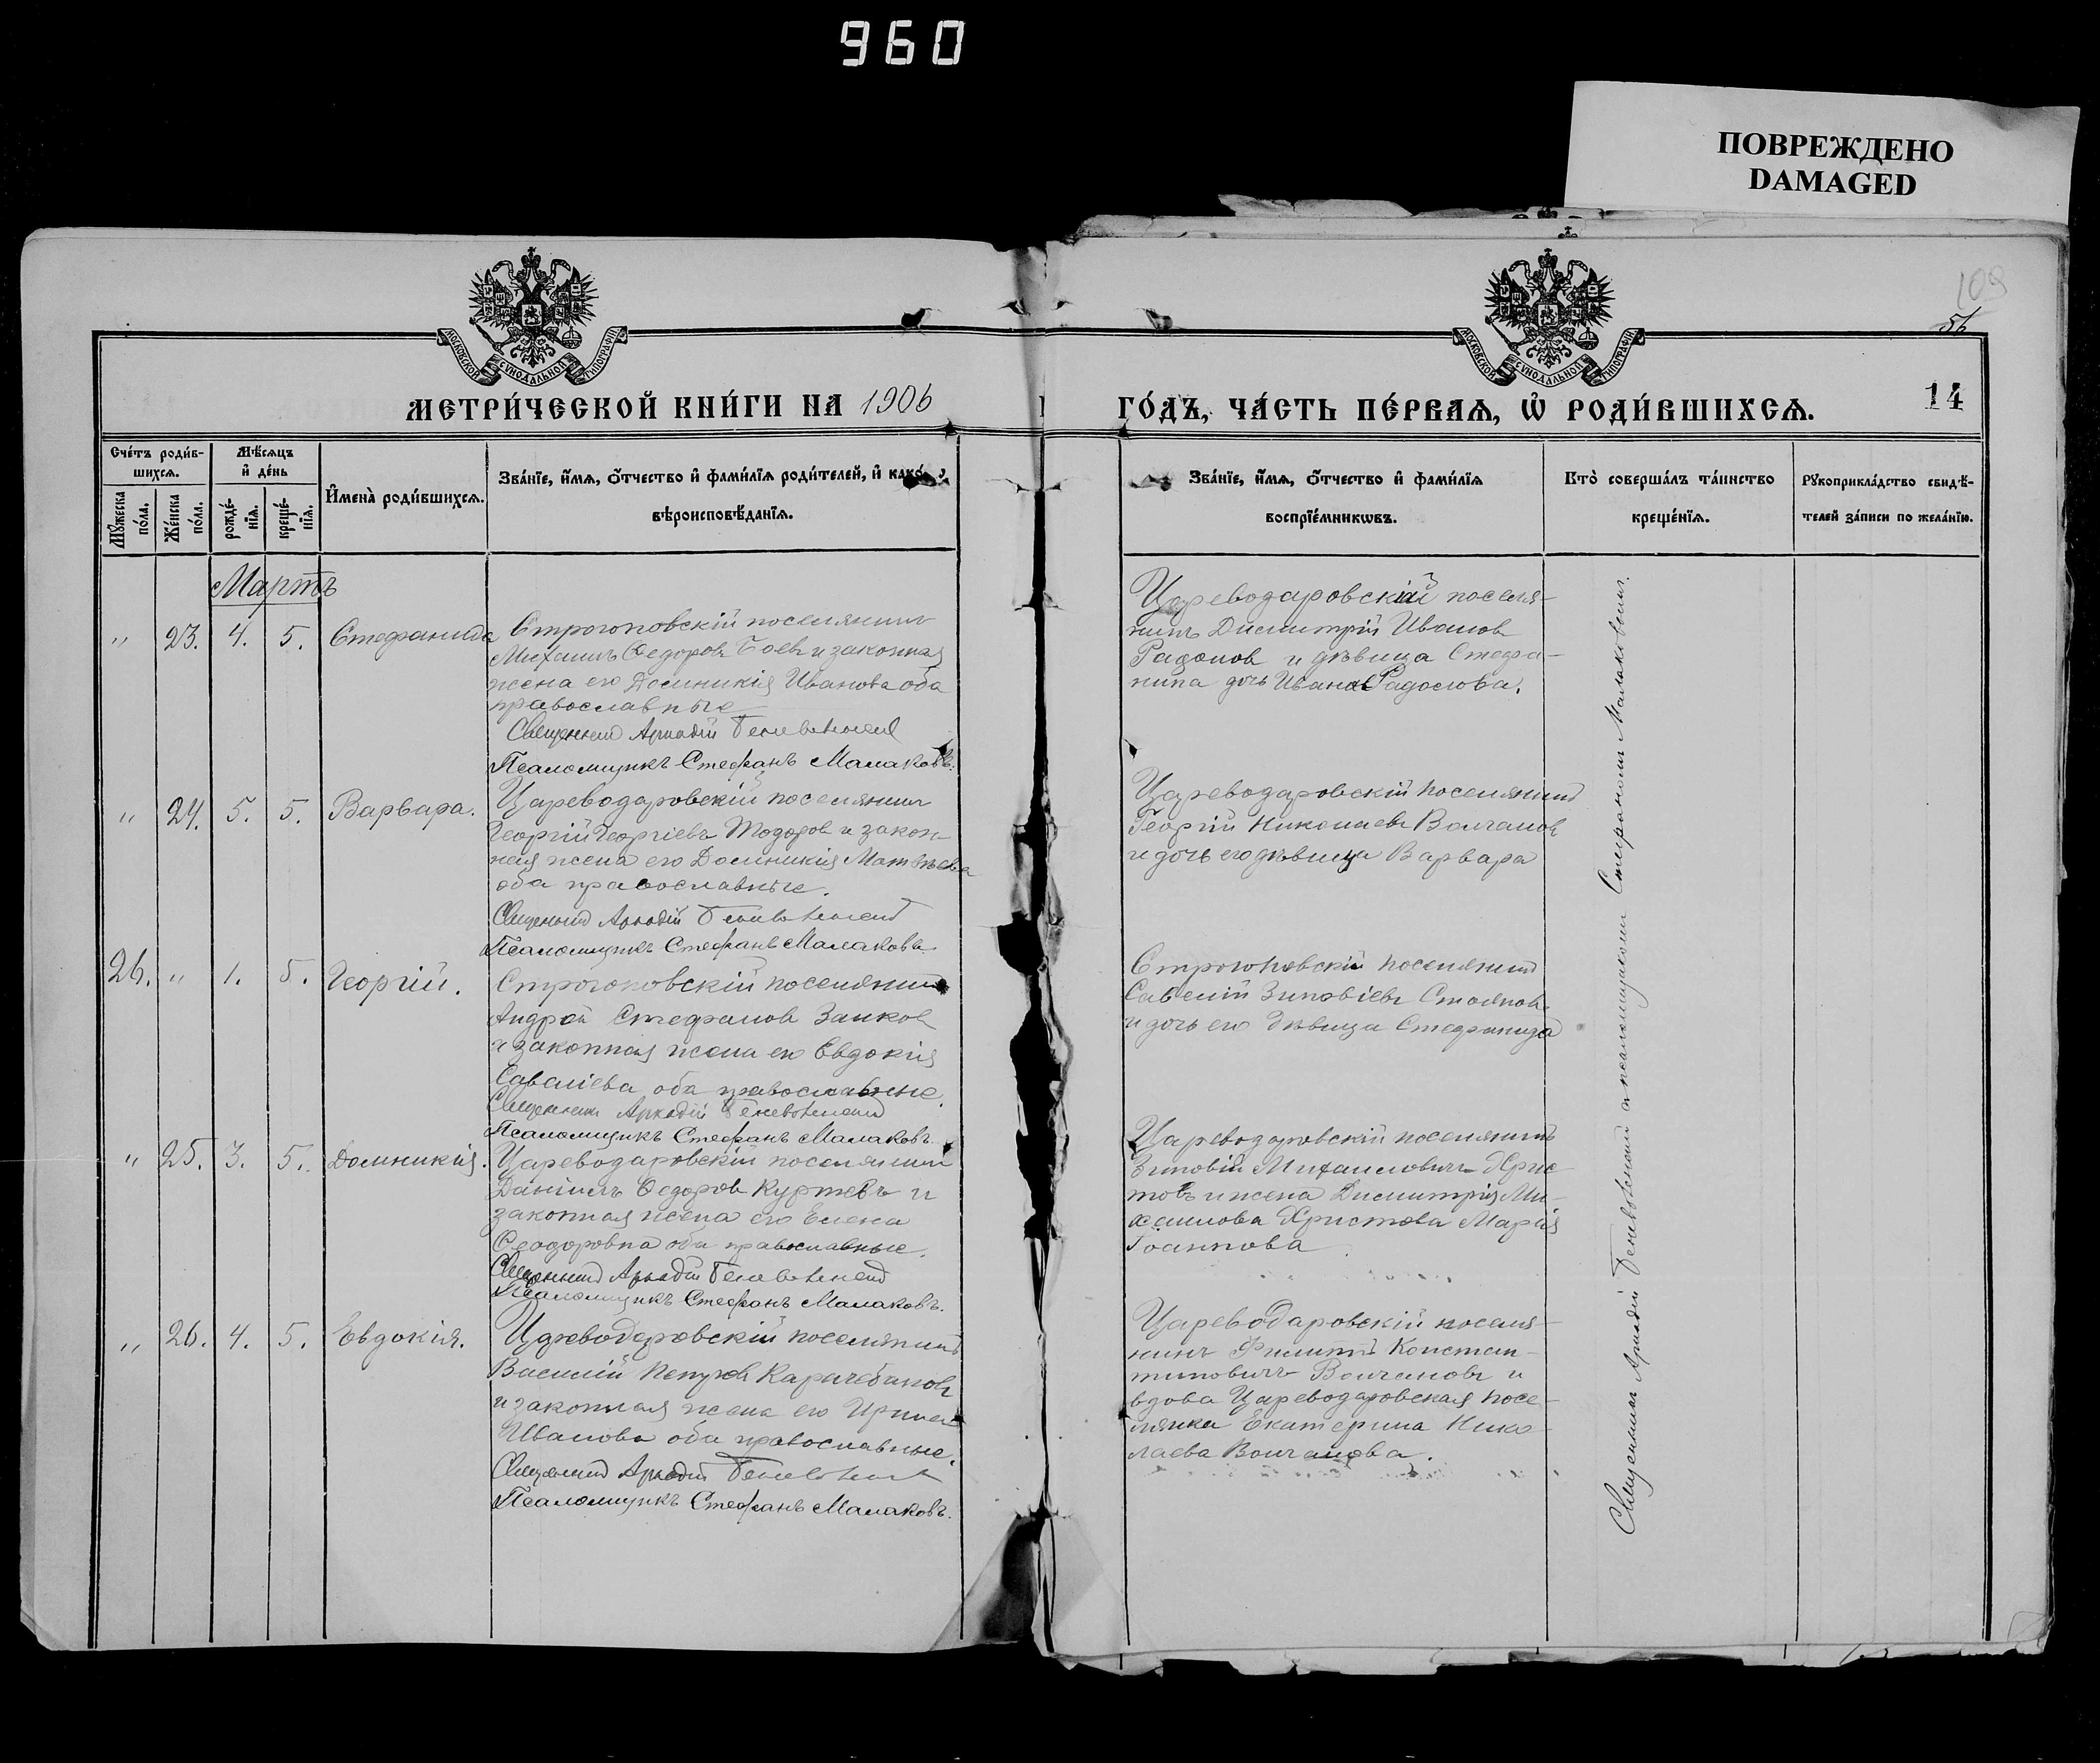 960
ПОВРЕЖДЕНО
DAMAGED
109
56
МОСКОВСКОЙ СѴНОДАЛЬНОЙ ТИПОГРАФІИ
МОСКОВСКОЙ СѴНОДАЛЬНОЙ ТИПОГРАФІИ
МЕТРИ́ЧЕСКОЙ КНИ́ГИ НА 1906
ГО́ДЪ, ЧА́СТЬ ПЕ́РВАѦ, Ѡ҆ РОДИ́ВШИХСѦ.
14
Сче́тъ роди́в-
шихсѧ.
Мѹ́жеска по́ла.
Же́нска по́ла.
Мѣ́сѧцъ
и҆ де́нь
рожде́-
нїѧ.
креще́-
нїѧ.
И҆мена̀ роди́вшихсѧ.
Зва́нїе, и҆́мѧ, ѻ҆́тчество и҆ фами́лїѧ роди́телей, и҆
вѣроисповѣ́данїѧ.
Зва́нїе, и҆́мѧ, ѻ҆́тчество и҆ фами́лїѧ
воспрїе́мникѡвъ.
Кто̀ соверша́лъ та́инство
креще́нїѧ.
Рѹкоприкла́дство свидѣ́-
телей за́писи по жела́нїю.
Мартъ
" 23. 4. 5. Стефанида
Строгоновскій поселянинъ
Михаилъ Ѳедоровъ Боевъ и законная
жена его Домникія Иванова оба
православные
Священникъ Аркадій
Псаломщикъ Стефанъ Малаковъ.
Цареводаровскій поселя-
нинъ Димитрій Ивановъ
и дѣвица Стефа-
нида дочь Ивана Радослова.
" 24. 5. 5. Варвара.
Цареводаровскій поселянинъ
Георгій Георгіевъ Тодоровъ и закон-
ная жена его Домникія Матвѣева
оба православные.
Священникъ Аркадій
Псаломщикъ Стефанъ Малаковъ.
Цареводаровскій поселянинъ
Георгій Николаевъ Волчановъ
и дочь его дѣвица Варвара
26. " 1. 5. Георгій.
Строгоновскій поселянинъ
Андрей Стефановъ Занковъ
и законная жена его Евдокія
Савеліева оба православные.
Священникъ Аркадій
Псаломщикъ Стефанъ Малаковъ.
Строгоновскій поселянинъ
Савелій Зиновіевъ Стояновъ
и дочь его дѣвица Стефанида
" 25. 3. 5. Домникія.
Цареводаровскій поселянинъ
Даніилъ Ѳедоровъ Куртевъ и
законная жена его Елена
Ѳеодоровна оба православные.
Священникъ Аркадій
Псаломщикъ Стефанъ Малаковъ.
Цареводаровскій поселянинъ
Зиновій Михаиловичъ Хрис-
товъ и жена Димитрія Ми-
хаилова Христова Марія
Іоаннова
" 26. 4. 5. Евдокія.
Цареводаровскій поселянинъ
Василій Петровъ Карачебановъ
и законная жена его Ирина
Иванова оба православные.
Священникъ Аркадій
Псаломщикъ Стефанъ Малаковъ.
Цареводаровскій поселя-
нинъ Филиппъ Констан-
тиновичъ Волчановъ и
вдова Цареводаровская посе-
лянка Екатерина Нико-
лаева Волчанова.
Священникъ Аркадій и псаломщикомъ Стефаномъ Малаковымъ.